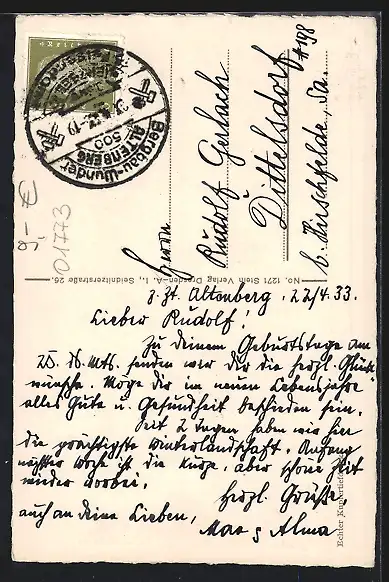 Bergbau-Wunder
500
ALTENBERG
Herrn
Rudolf Gerlach
Dittelsdorf
b. Hirschfelde, Sa.
No. 1271 Stein Verlag Dresden-A. 1, Seidnitzerstraße 26.
01773
z. Zt. Altenberg, 22/4.33.
Lieber Rudolf!
Zu deinem Geburtstage am
25. ds. Mts. senden wir dir die herzl. Glück-
wünsche. Möge dir im neuen Lebensjahre
alles Gute u. Gesundheit beschieden sein.
Seit 2 Tagen haben wir hier
die prächtigste Winterlandschaft. Anfang
nächster Woche ist die kurze, aber schöne Zeit
wieder vorbei.
Herzl. Grüße,
auch an deine Lieben,
Max & Alma
Echter Kupfertief